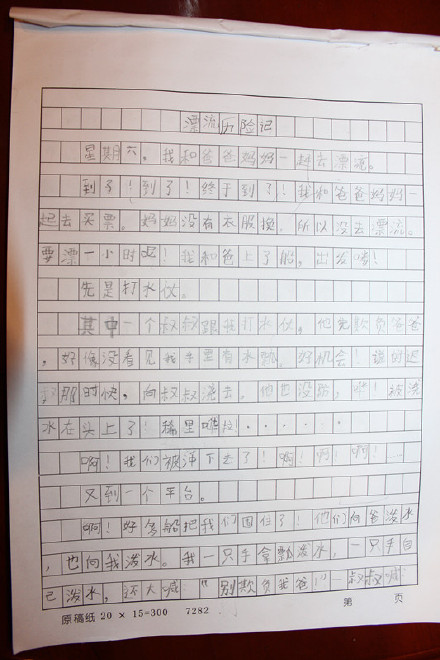 漂流历险记
星期六。我和爸爸妈妈一起去漂流。
到了!到了!终于到了!我和爸爸妈妈一
起去买票。妈妈没有衣服换。所以没去漂流。
要漂一小时呢!我和爸上了船,出发喽!
先是打水仗。
其中一个叔叔跟我打水仗,他光欺负爸爸
,好像没看见我手里有水瓢。好机会!说时迟
那时快,向叔叔浇去。他也没躲,啊!被浇
水在头上了!稀里哗拉!······
啊!我们被冲下去了!啊!啊!啊!—
又到一个平台。
啊!好多船把我们围住了!他们向爸泼水
,也向我泼水。我一只手拿瓢泼水,一只手自
己泼水,还大喊:"别欺负我爸!"叔叔喊
原稿纸 20 × 15=300 7282 第 页